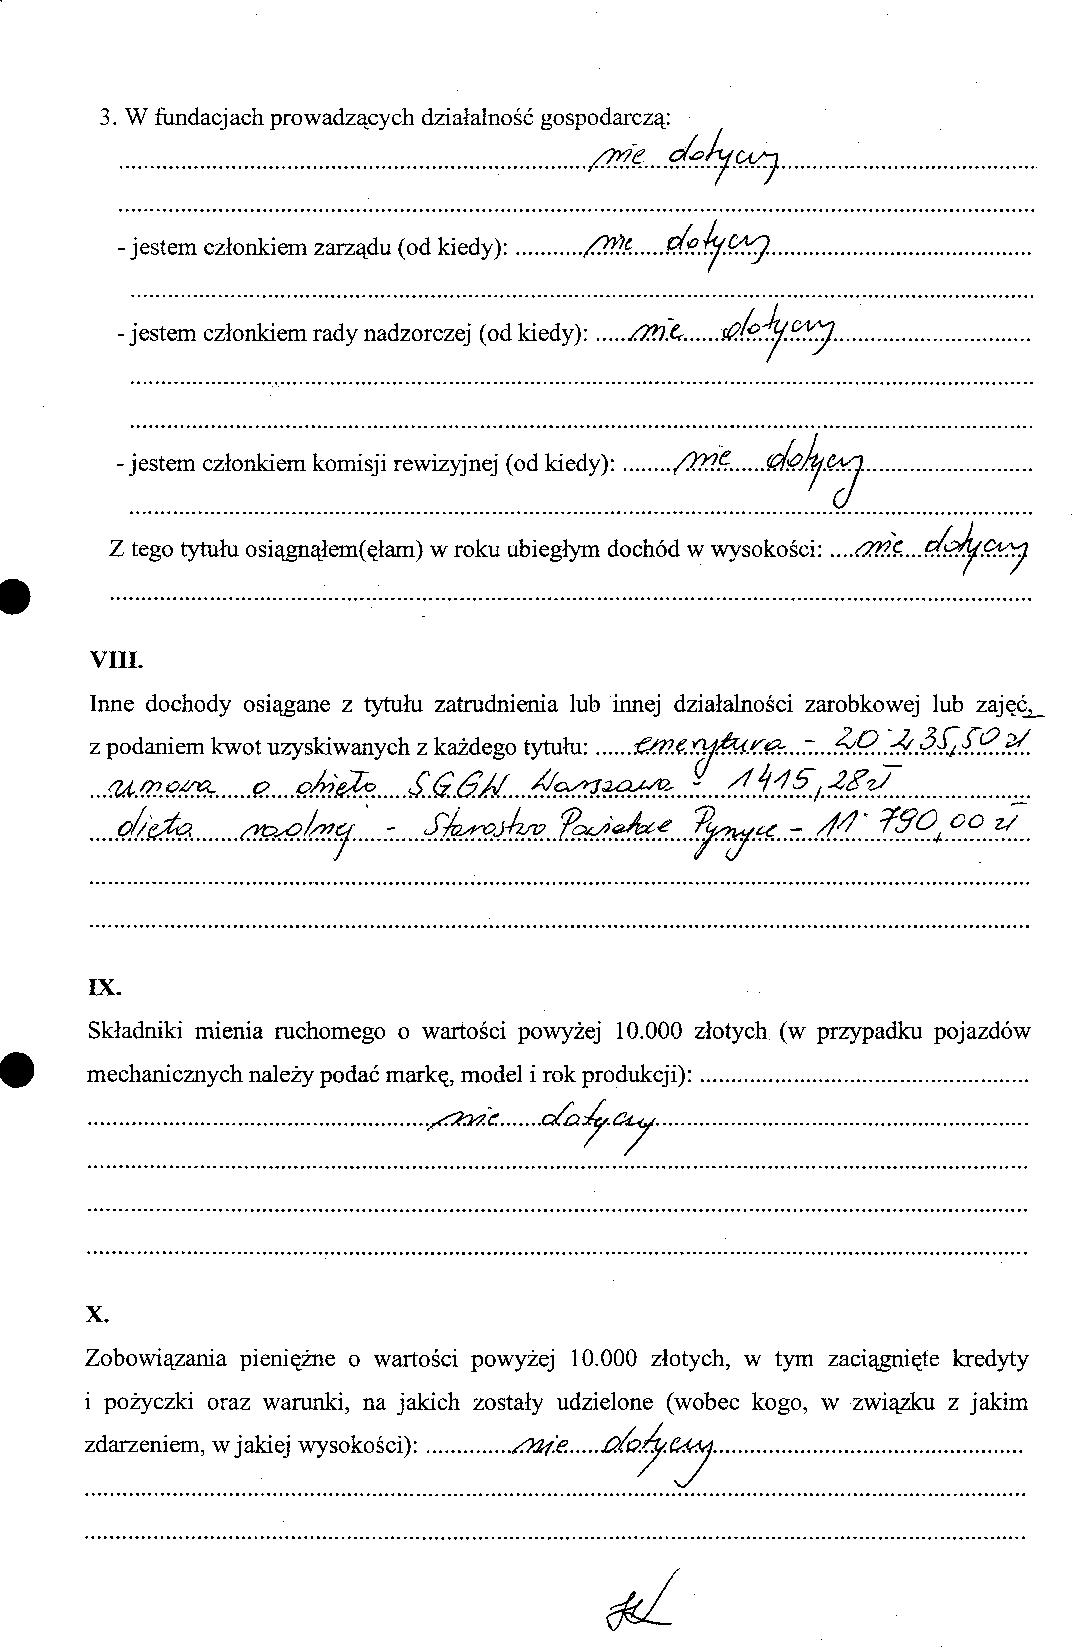 3. W fundacjach prowadzących działalność gospodarczą:
nie dotyczy
- jestem członkiem zarządu (od kiedy): nie dotyczy
- jestem członkiem rady nadzorczej (od kiedy): nie dotyczy
- jestem członkiem komisji rewizyjnej (od kiedy): nie dotyczy
Z tego tytułu osiągnąłem(ęłam) w roku ubiegłym dochód w wysokości: nie dotyczy
VIII.
Inne dochody osiągane z tytułu zatrudnienia lub innej działalności zarobkowej lub zajęć,
z podaniem kwot uzyskiwanych z każdego tytułu: emerytura - 20 235,50 zł
umowa o dzieło SGGW Warszawa - 1415,28 zł
dieta radnej - Starostwo Powiatowe Pyrzyce - 11 790,00 zł
IX.
Składniki mienia ruchomego o wartości powyżej 10.000 złotych (w przypadku pojazdów
mechanicznych należy podać markę, model i rok produkcji):
nie dotyczy
X.
Zobowiązania pieniężne o wartości powyżej 10.000 złotych, w tym zaciągnięte kredyty
i pożyczki oraz warunki, na jakich zostały udzielone (wobec kogo, w związku z jakim
zdarzeniem, w jakiej wysokości): nie dotyczy